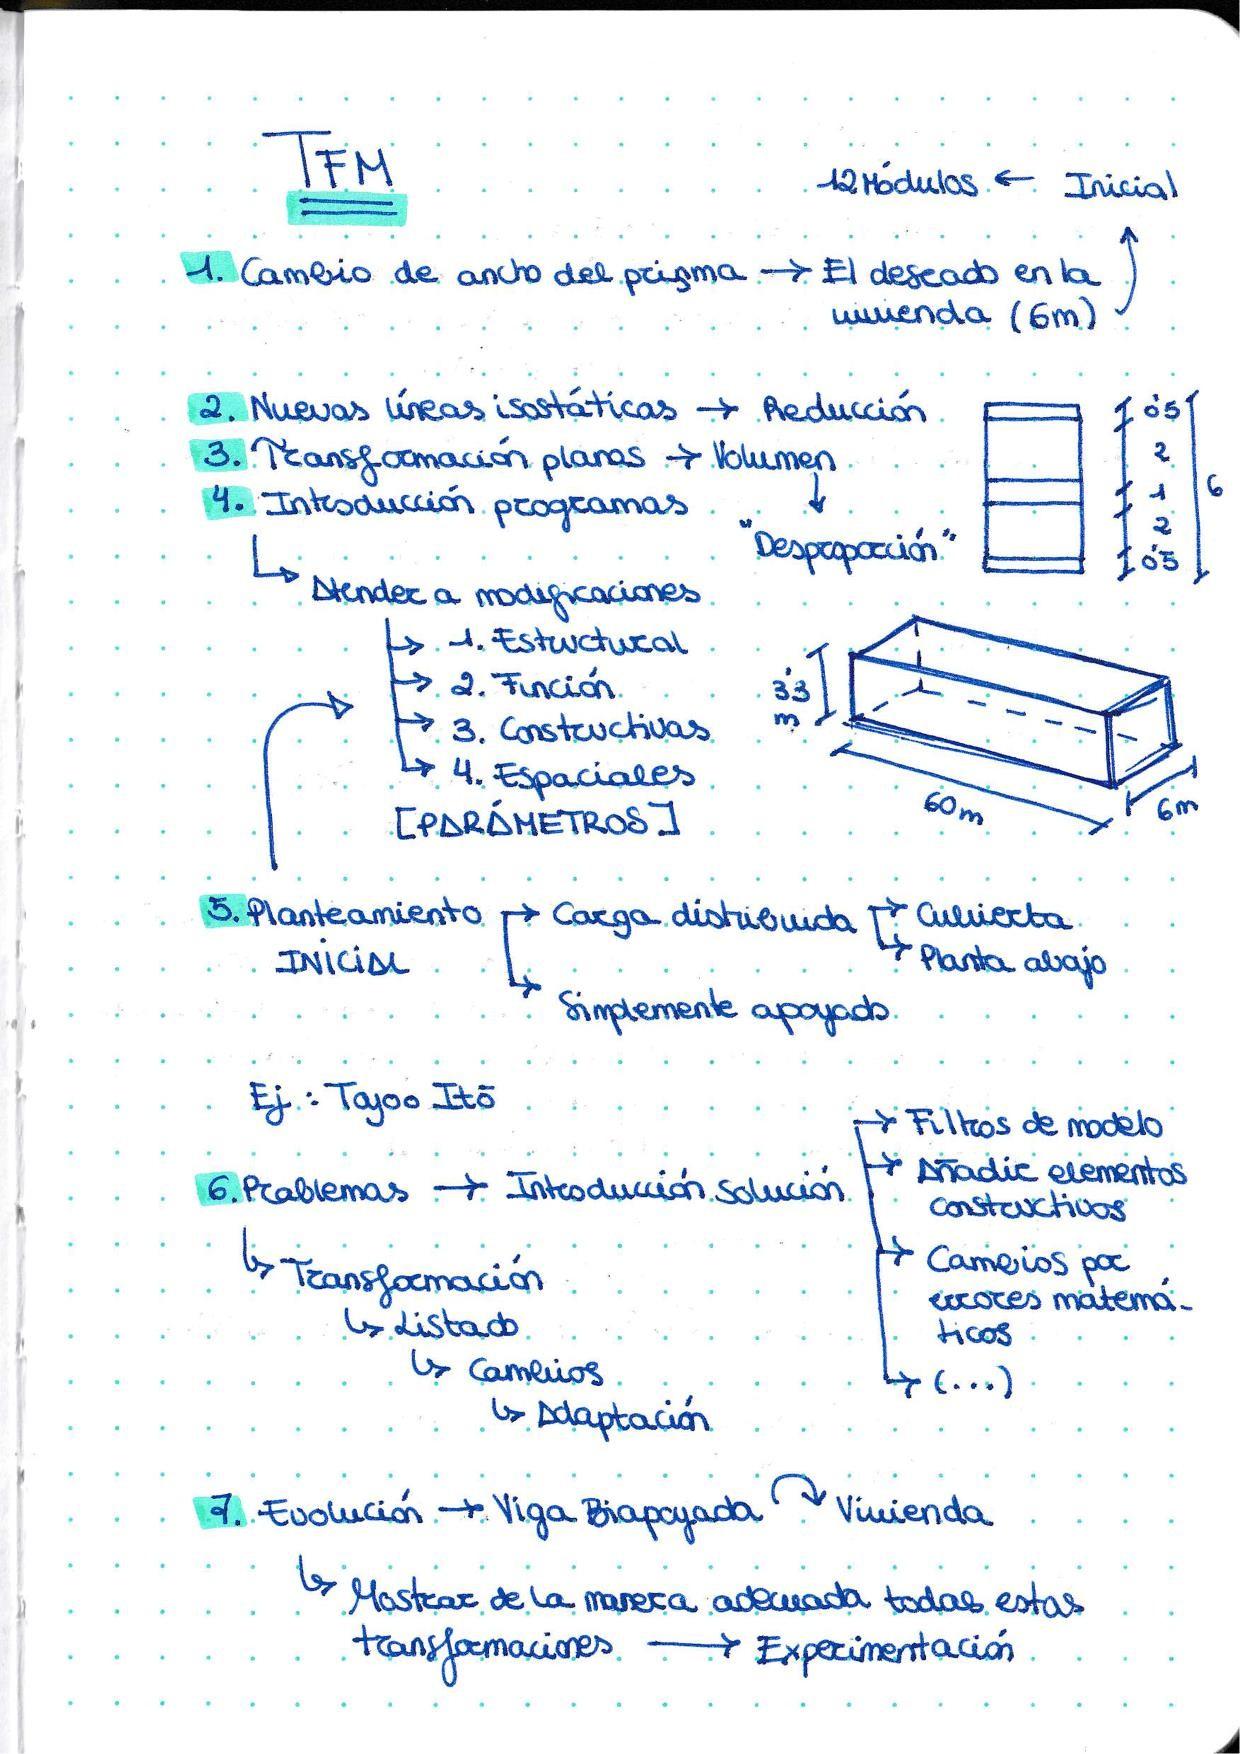 TFM
12 Módulos ← Inicial
1. Cambio de ancho del prisma → El deseado en la
vivienda (6m)
2. Nuevas líneas isostáticas → Reducción
3. Transformación planos → Volumen
4. Introducción programas
"Desproporción"
0'5
2
1
2
0'5
6
Atender a modificaciones
→ 1. Estructural
→ 2. Función
→ 3. Constructivas
→ 4. Espaciales
[PARÁMETROS]
3'3
m
60m
6m
5. Planteamiento → Carga distribuida → Cubierta
INICIAL
→ Planta abajo
→ Simplemente apoyado
Ej.: Tayoo Itō
6. Problemas → Introducción solución
→ Filtros de modelo
→ Añadir elementos
constructivos
→ Cambios por
errores matemá-
ticos
→ (...)
↳ Transformación
↳ Listado
↳ Cambios
↳ Adaptación
7. Evolución → Viga Biapoyada ↷ Vivienda
↳ Mostrar de la manera adecuada todas estas
transformaciones → Experimentación